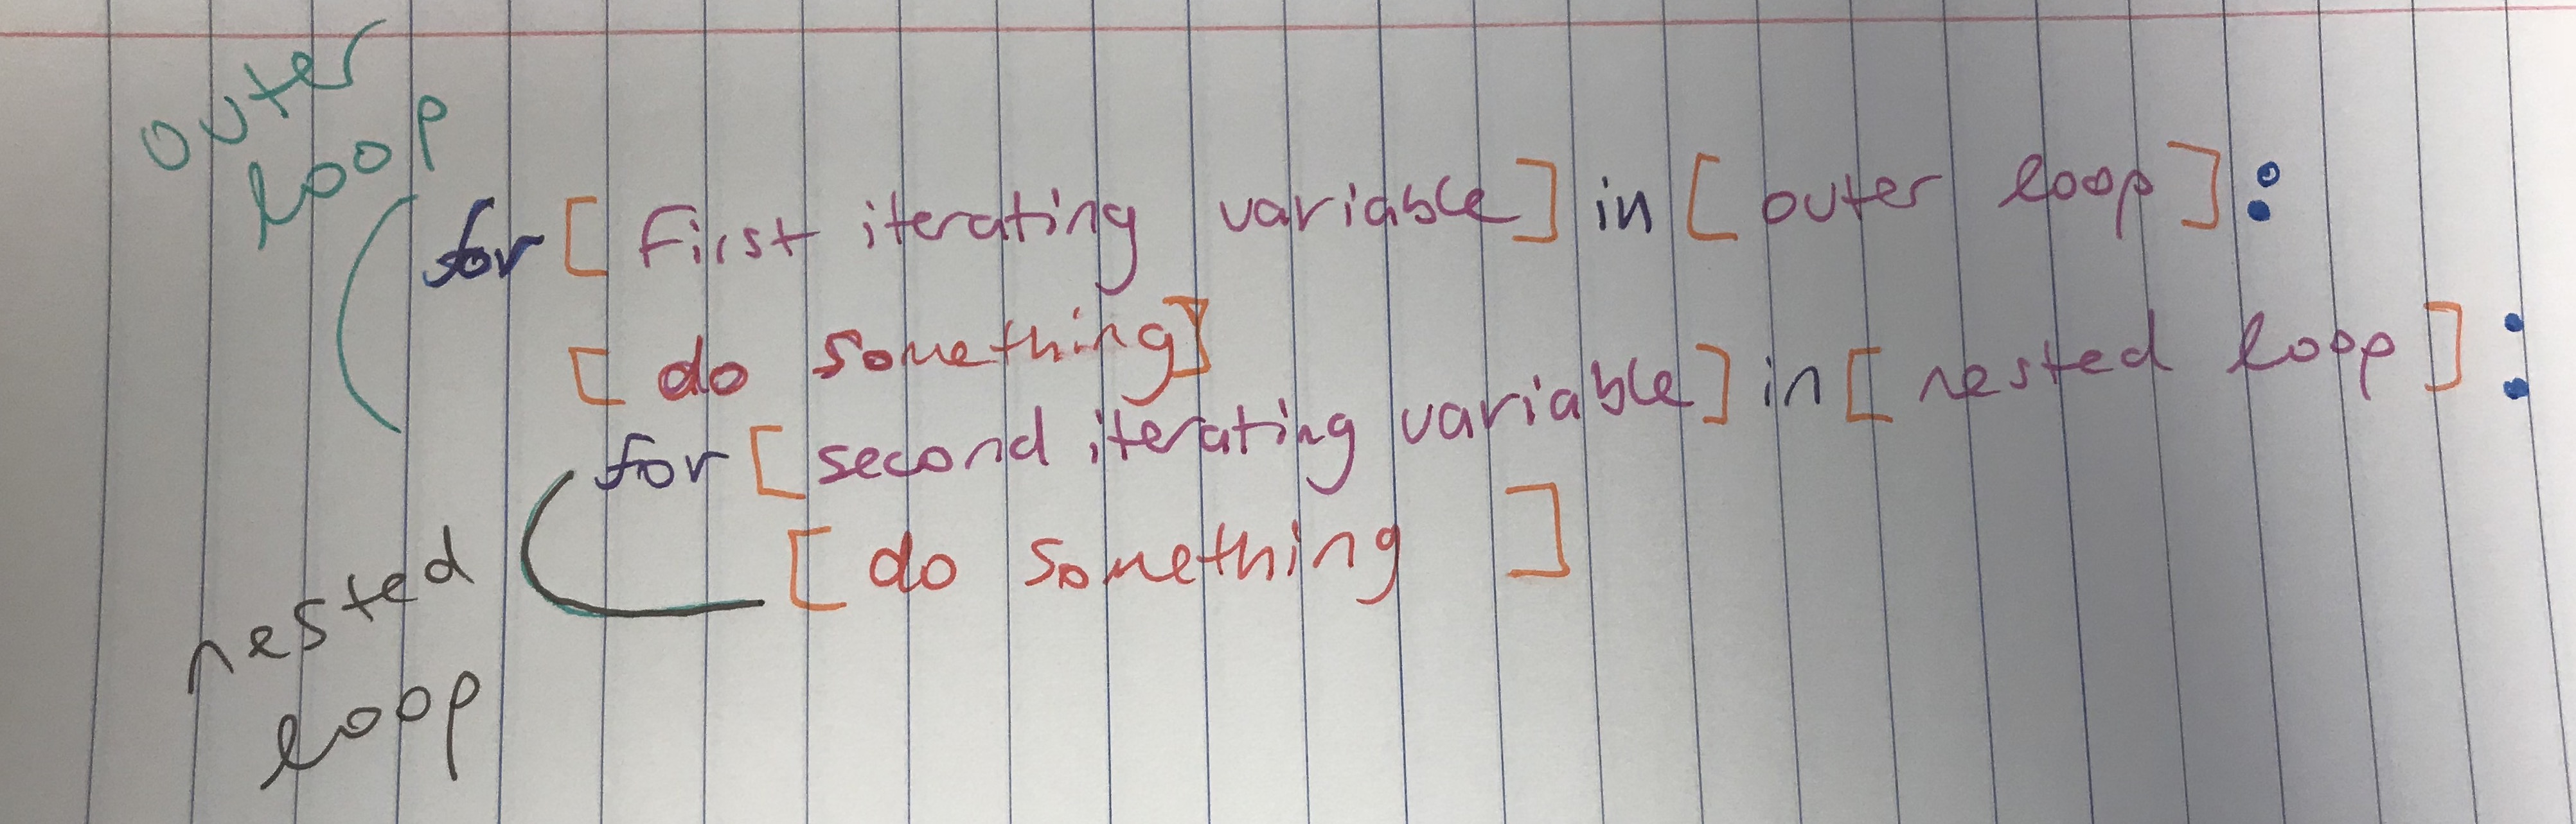 outer
loop
for [ First iterating variable ] in [ outer loop ] :
[ do something ]
for [ second iterating variable ] in [ nested loop ] :
[ do something ]
nested
loop